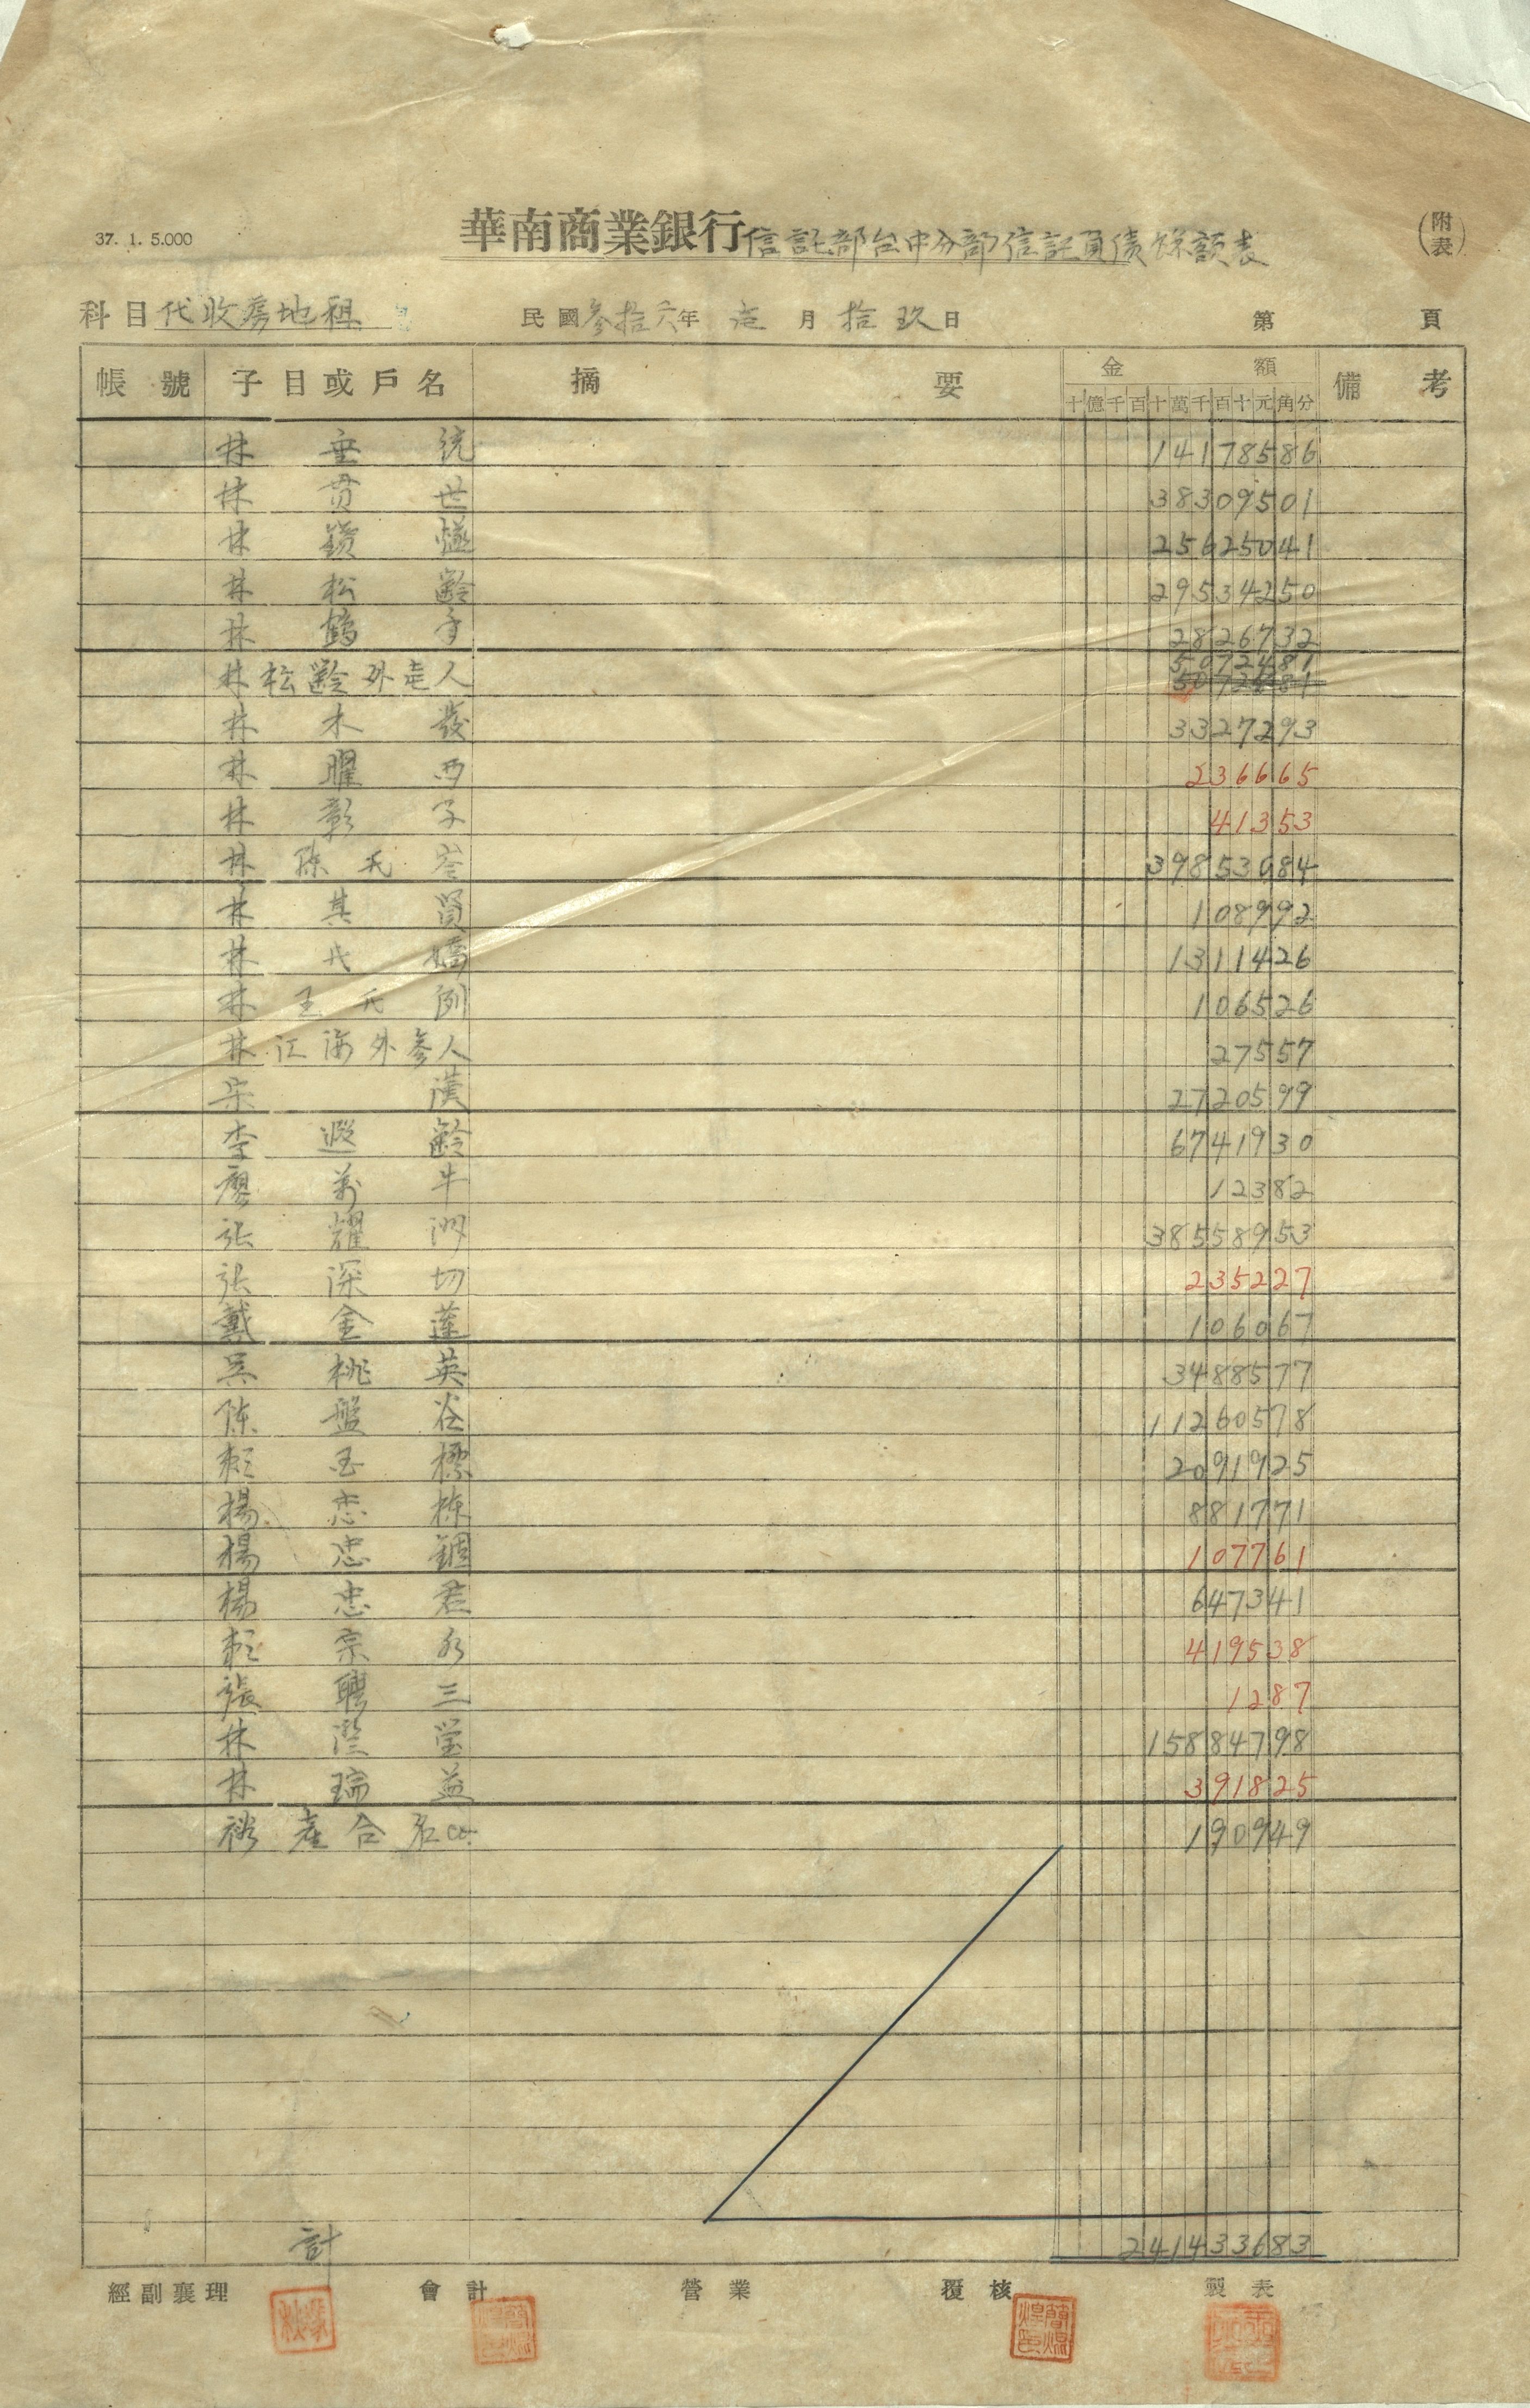 37. 1. 5.000
華南商業銀行信託部台中分部信託負債餘額表
(附表)
科目 代收房地租
民國參拾六年 壱月 拾玖日
第 頁
帳號 子目或戶名 摘要 金額 備考
十億千百十萬千百十元角分
林垂統 14178586
林貫世 38309501
林鑽燧 25625041
林松齡 29534250
林鶴年 2826732
林松齡外壱人 5072481
5072481
林木發 3327293
林曜西 236665
林彰子 41353
林陳氏岺 39853084
林其賢 108992
林氏嬌 1311426
林王氏例 106526
林江海外參人 27557
宋漢 2720599
李遐齡 6741930
廖萬牛 12382
張耀洲 38558953
張深切 235227
戴金蓮 106067
吳桃英 3488577
陳盤谷 11260578
賴玉標 2091925
楊忠棟 881771
楊忠錮 107761
楊忠君 647341
賴宗水 419538
張聘三 1287
林瀅莹 15884798
林瑞益 391825
裕產合名 190949
計 241433683
經副襄理 會計 營業 覆核 製表